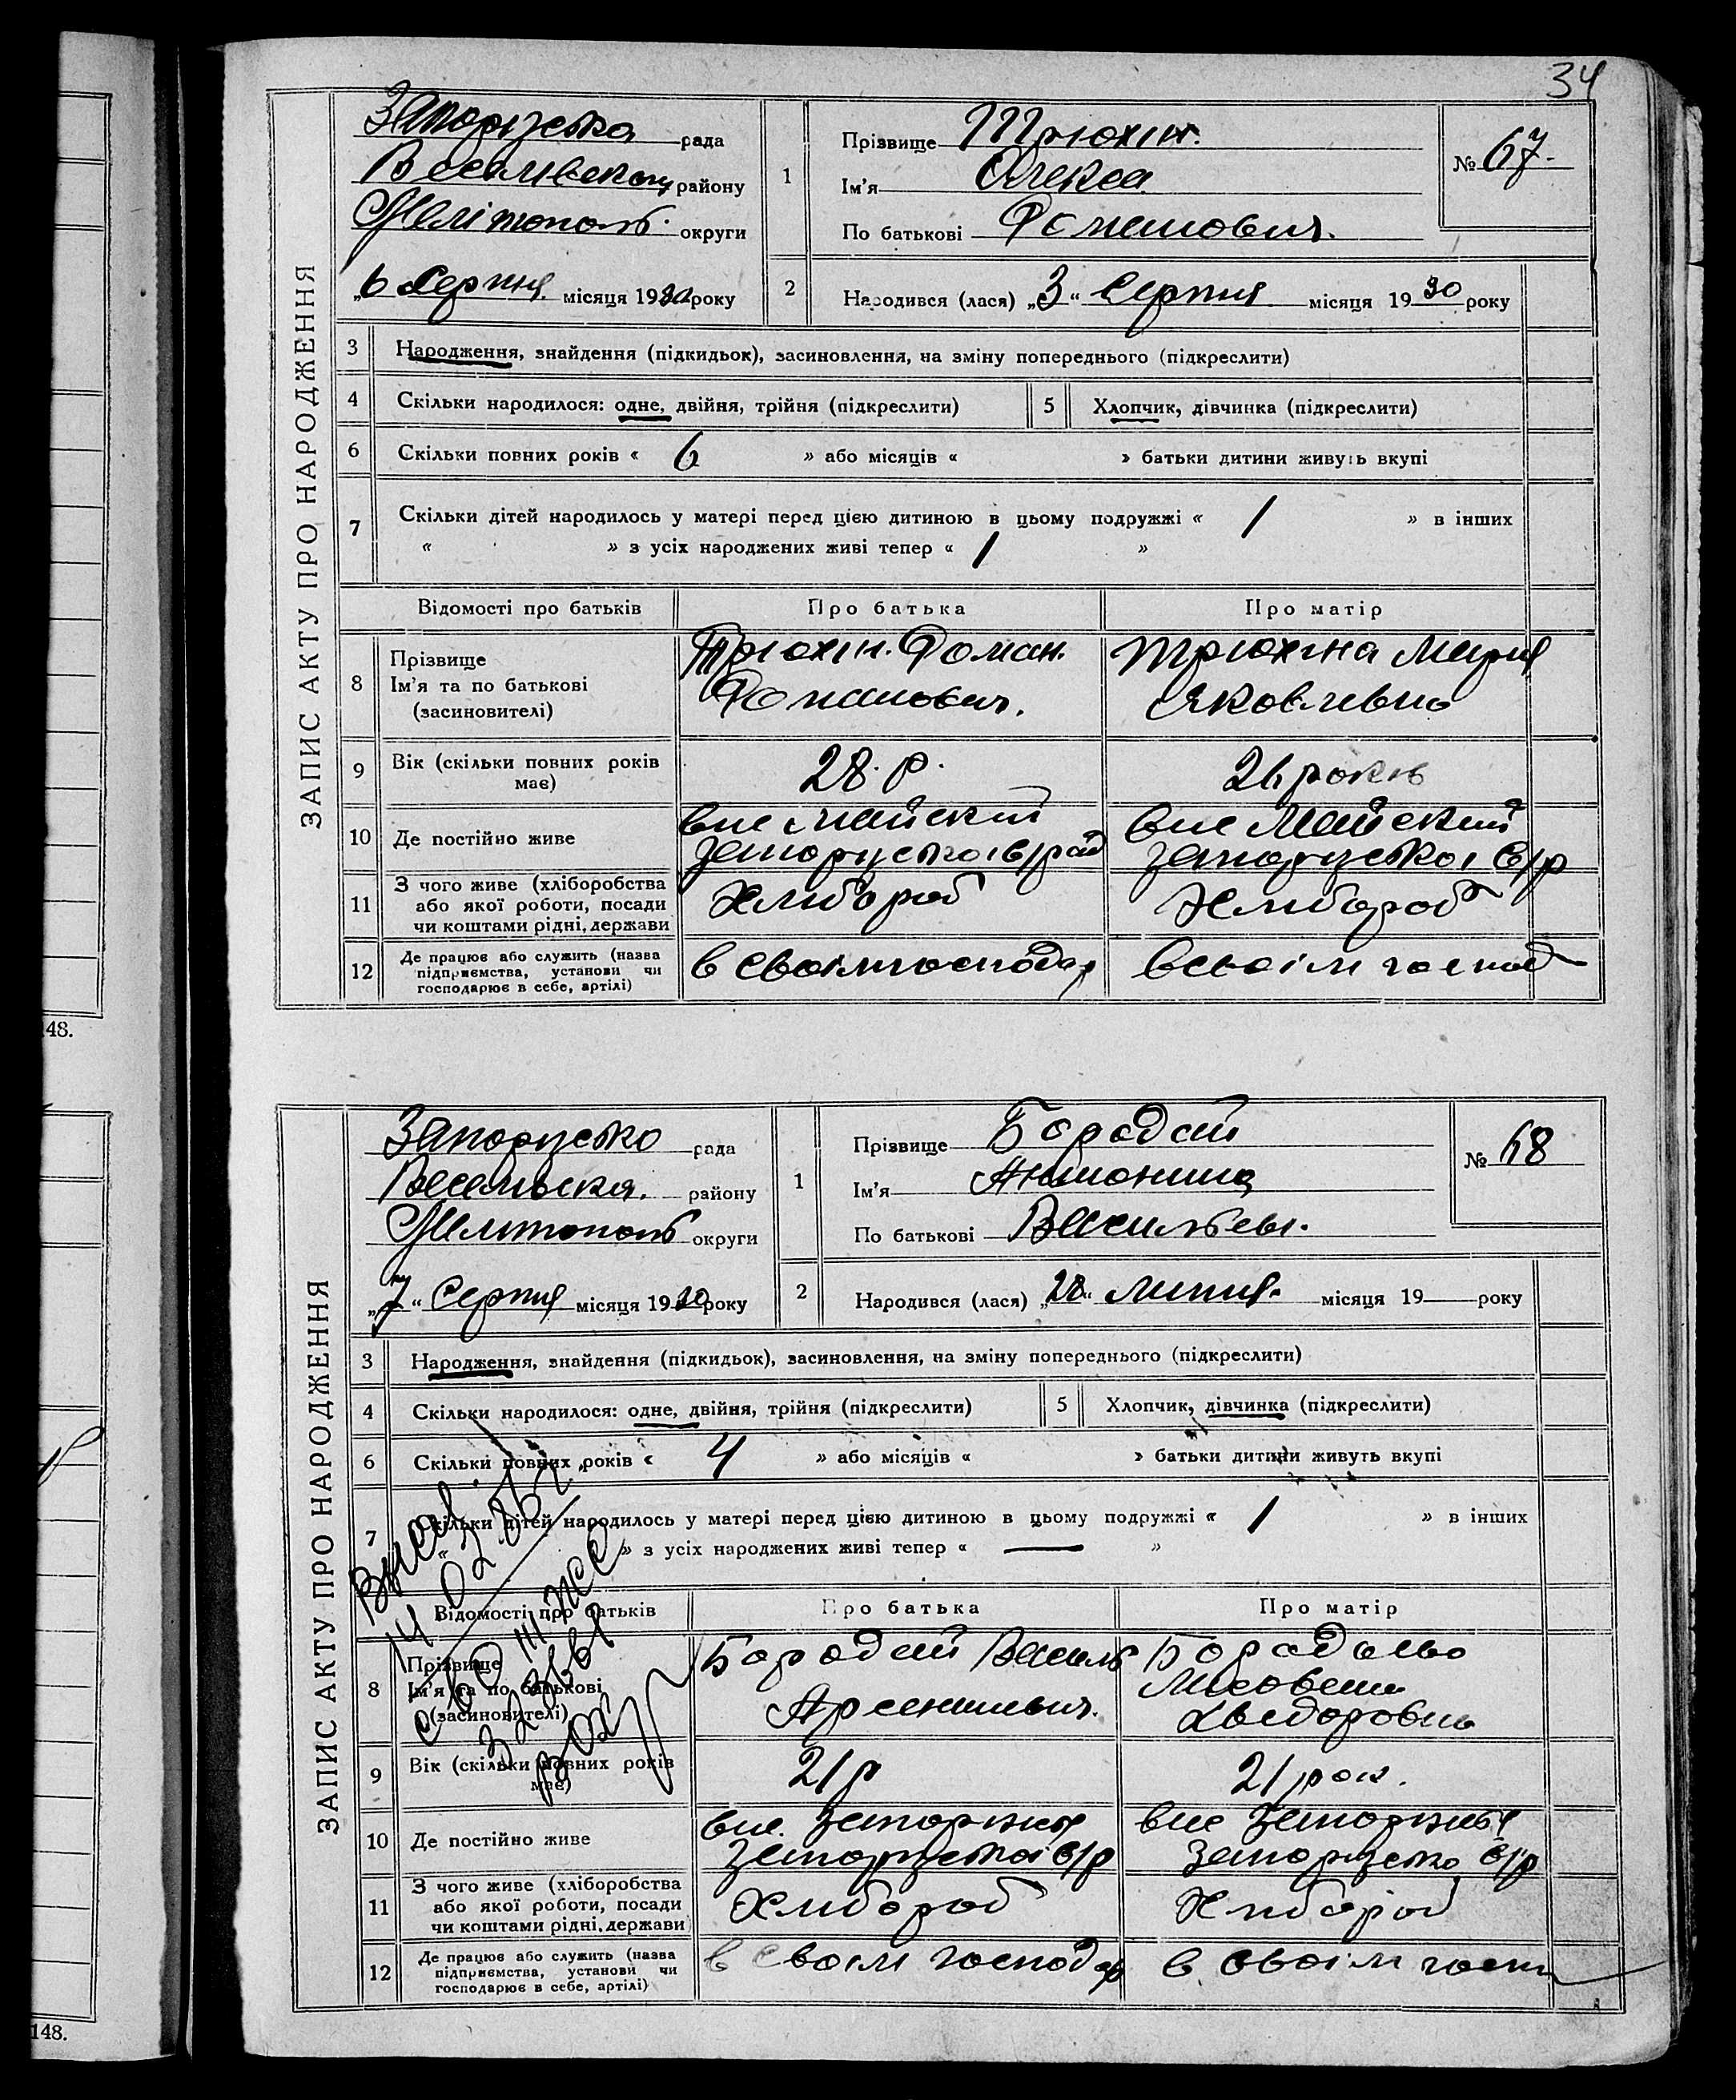 34
ЗАПИС АКТУ ПРО НАРОДЖЕННЯ
Запорізька рада
району
Мелітополь. округи
„6 Серпня місяця 1930 року
1
Прізвище Трюхін.
Ім'я Олекса
По батькові Романович.
№ 67.
2
Народився (лася) „3“ Серпня місяця 1930 року
3 Народження, знайдення (підкидьок), засиновлення, на зміну попереднього (підкреслити)
4 Скільки народилося: одне, двійня, трійня (підкреслити) 5 Хлопчик, дівчинка (підкреслити)
6 Скільки повних років « 6 » або місяців « » батьки дитини живуть вкупі
7 Скільки дітей народилось у матері перед цією дитиною в цьому подружжі « 1 » в інших
« » з усіх народжених живі тепер « 1 »
Відомості про батьків Про батька Про матір
8 Прізвище
Ім'я та по батькові
(засиновителі)
Трюхін. Роман.
Романович.
Трюхіна Мария
Яковливна
9 Вік (скільки повних років
має)
28. р.
10 Де постійно живе
Майский
Запорізькоі с/рад
Майский
Запорізькоі с/р
11 З чого живе (хліборобства
або якої роботи, посади
чи коштами рідні, держави
Хлибороб
Хлибороб
12 Де працює або служить (назва
підприємства, установи чи
господарює в себе, артілі)
в своім господар
в своім господ
48.
ЗАПИС АКТУ ПРО НАРОДЖЕННЯ
Запорізько рада
району
Мелитополь округи
„7“ Серпня місяця 1930 року
1
Прізвище Бородай
Ім'я Антонина
По батькові Васильев.
№ 68
2
Народився (лася) „28“ Липня. місяця 19— року
3 Народження, знайдення (підкидьок), засиновлення, на зміну попереднього (підкреслити)
4 Скільки народилося: одне, двійня, трійня (підкреслити) 5 Хлопчик, дівчинка (підкреслити)
6 Скільки повних років « 4 » або місяців « » батьки дитини живуть вкупі
7 Скільки дітей народилось у матері перед цією дитиною в цьому подружжі « 1 » в інших
« » з усіх народжених живі тепер « — »
Відомості про батьків Про батька Про матір
8 Прізвище
Ім'я та по батькові
(засиновителі)
Бородай Василь
9 Вік (скільки повних років
має)
21 р
21 рок.
10 Де постійно живе
Запорізькоі с/р
Запорізько с/р
11 З чого живе (хліборобства
або якої роботи, посади
чи коштами рідні, держави
Хлибороб
Хлибороб
12 Де працює або служить (назва
підприємства, установи чи
господарює в себе, артілі)
в своім господар
в своім
148.